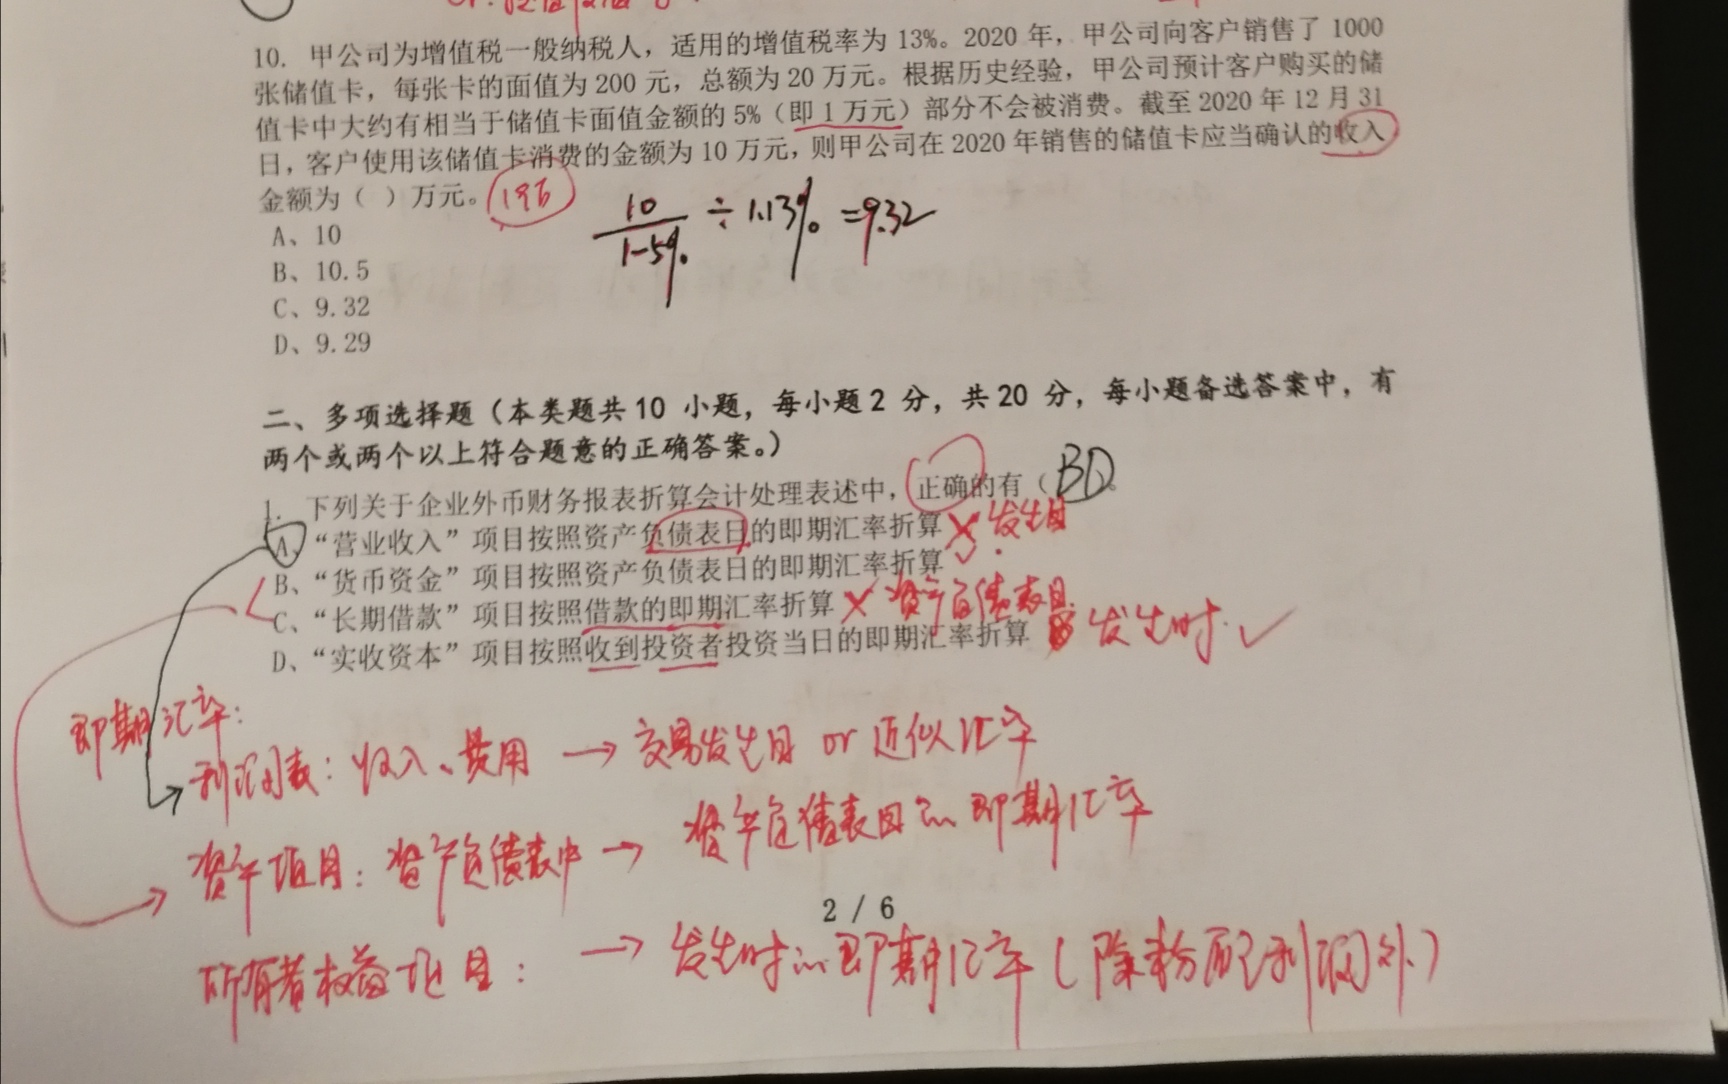 10. 甲公司为增值税一般纳税人，适用的增值税率为 13%。2020 年，甲公司向客户销售了 1000
张储值卡，每张卡的面值为 200 元，总额为 20 万元。根据历史经验，甲公司预计客户购买的储
值卡中大约有相当于储值卡面值金额的 5%（即 1 万元）部分不会被消费。截至 2020 年 12 月 31
日，客户使用该储值卡消费的金额为 10 万元，则甲公司在 2020 年销售的储值卡应当确认的收入
金额为（ ）万元。
10/1-5% ÷ 1.13% =9.32
A、10
B、10.5
C、9.32
D、9.29
二、多项选择题（本类题共 10 小题，每小题 2 分，共 20 分，每小题备选答案中，有
两个或两个以上符合题意的正确答案。）
1. 下列关于企业外币财务报表折算会计处理表述中，正确的有（ BD 。
A、“营业收入”项目按照资产负债表日的即期汇率折算 × 发生日
B、“货币资金”项目按照资产负债表日的即期汇率折算
C、“长期借款”项目按照借款的即期汇率折算 × 资产负债表日
D、“实收资本”项目按照收到投资者投资当日的即期汇率折算 发生时 ✓
即期汇率：
利润表：收入、费用 → 交易发生日 or 近似汇率
资产项目：资产负债表中 → 资产负债表日的即期汇率
2 / 6
所有者权益项目： → 发生时的即期汇率（除未分配利润外）